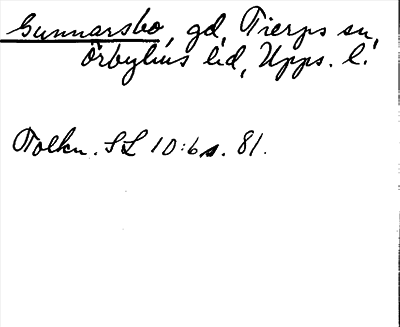 Gunnarsbo, gd, Tierps sn,
Örbyhus hd, Upps. l.
Tolkn. SL 10:6 s. 81.